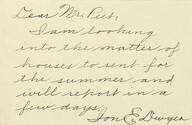 Dear Mr. Peet,
I am looking
into the matter of
houses to rent for
the summer and
will report in a
few days.
Jon E. Dwyer